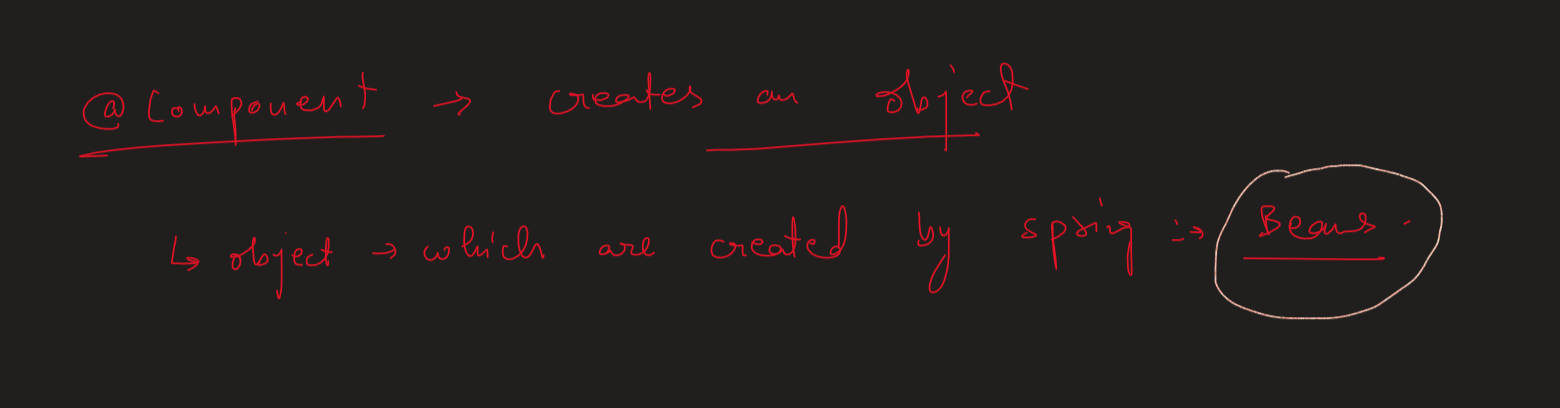 @Component → creates an object
↳ object → which are created by spring :→ Beans.